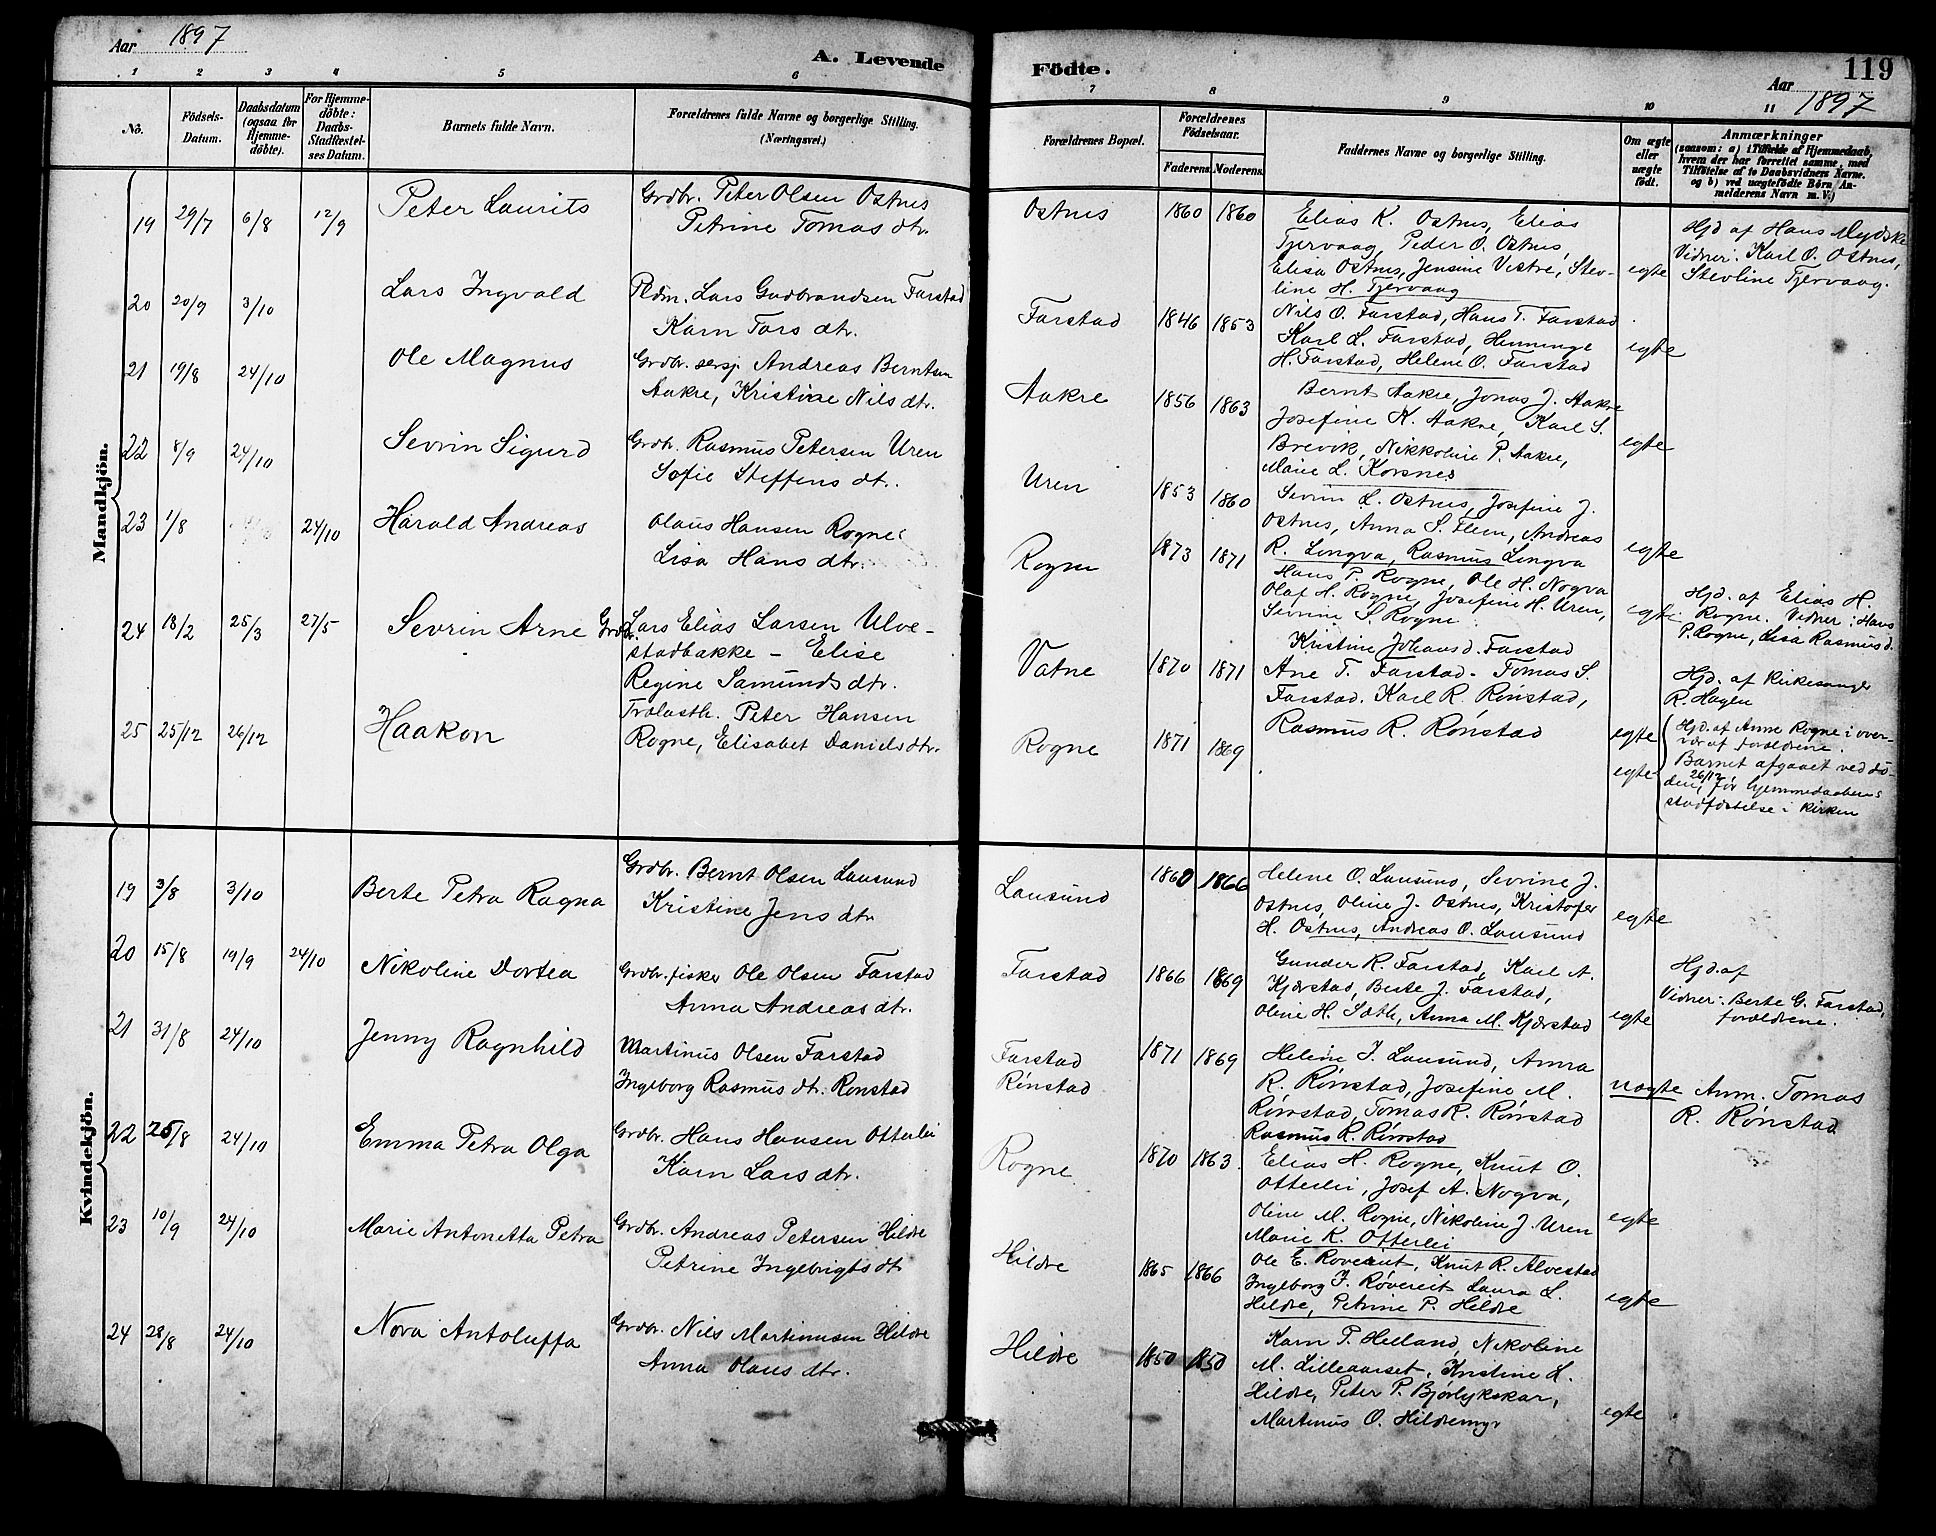 Aar 1897
A. Levende
1 2 3 4 5 6
No.
Födsels-Datum.
Daabsdatum (ogsaa for Hjemme-döbte).
For Hjemme-döbte: Daabs-Stadfæstel-ses Datum.
Barnets fulde Navn.
Forældrenes fulde Navne og borgerlige Stilling.
(Næringsvei.)
Mandkjön.
19 29/7 6/8 12/9 Peter Laurits Grdbr. Peter Olsen Ostnes
Petrine Tomas dtr.
20 20/9 3/10 Lars Ingvald Pldm. Lars Gudbrandsen Farstad
Karn Tors dtr.
21 19/8 24/10 Ole Magnus Grdbr. sersj. Andreas Berntsen
Aakre, Kristine Nils dtr.
22 8/9 24/10 Sevrin Sigurd Grdbr. Rasmus Petersen Uren
Sofie Steffens dt.
23 1/8 24/10 Harald Andreas Olaus Hansen Rogne
Lisa Hans dtr.
24 18/2 25/3 27/5 Sevrin Arne Grdbr. Lars Elias Larsen Ulve-
stadbakke - Elise
Regine Samunds dtr.
25 25/12 26/12 Haakon Peter Hansen
Rogne, Elisabet Daniels dtr.
Kvindekjön.
19 3/8 3/10 Berte Petra Ragna Grdbr. Bernt Olsen Lausund
Kristine Jens dtr
20 15/8 19/9 24/10 Nikoline Dortea Grdbr. fisker Ole Olsen Farstad
Anna Andreas dtr.
21 31/8 24/10 Jenny Ragnhild Martinus Olsen Farstad
Ingeborg Rasmus dtr. Rønstad
22 25/8 24/10 Emma Petra Olga Grdbr. Hans Hansen Otterlei
Karn Lars dtr.
23 10/9 24/10 Marie Antonetta Petra Grdbr. Andreas Petersen Hildre
Petrine Ingebrigts dt
24 28/8 24/10 Nora Antoluffa Grdbr. Nils Martinusen Hildre
Anna Olaus dtr.
Födte.
Aar 1897
119
7 8 9 10 11
Forældrenes Bopæl.
Forældrenes Födselsaar.
Faderens. Moderens.
Faddernes Navne og borgerlige Stilling.
Om ægte eller uægte födt.
Anmærkninger
(saasom: a) i Tilfælde af Hjemmedaab,
hvem der har forrettet samme, med
Tilföielse af to Daabsvidners Navne.
og b) ved uægtefödte Börn An-
melderens Navn m. V.)
Ostnes 1860 1860 Elias K. Ostnes, Elias
Tjervaag, Peder O. Ostnes,
Elisa Ostnes, Jensine Vestre, Stev-
line H. Tjervaag
egte
Hjd af Hans Mydske
Vidner: Karl O. Ostnes,
Stevline Tjervaag.
Farstad 1846 1853 Nils O. Farstad, Hans T. Farstad
Karl L. Farstad, Henninge
H. Farstad, Helene O. Farstad
egte
Aakre 1856 1863 Bernt Aakre, Jonas J. Aakre
Josefine K. Aakre, Karl S.
Brevik, Nikkoline P. Aakre,
Marie L. Korsnes
egte
Uren 1853 1860 Sevrin L. Ostnes, Josefine J.
Ostnes, Anna S. Flem, Andreas
R. Longva, Rasmus Longva
egte
Rogne 1873 1871 Hans P. Rogne, Ole H. Nogva
Olaf H. Rogne, Josefine H. Uren,
Sevrine S. Rogne
egte
Hjd. af Elias H.
Rogne. Vidner: Hans
P. Rogne, Lisa Rasmusd.
Vatne 1870 1871 Kristine Johans d. Farstad
Ane T. Farstad. Tomas S.
Farstad. Karl R. Rønstad,
Rasmus R. Rønstad
egte
Hjd. af Kirkesanger
R. Hagen
Rogne 1871 1869
egte
Hjd. af Anne Rogne i over-
vær af forældrene.
Barnet afgaaet ved dö-
den 26/12, før hjemmedaabens
stadfæstelse i kirken
Lausund 1860 1866 Helene O. Lausund, Sevrine J.
Ostnes, Oline J. Ostnes, Kristofer
H. Ostnes, Andreas O. Lausund
egte
Farstad 1866 1869 Gunder R. Farstad, Karl A.
Kjærstad, Berte J. Farstad,
Oline H. Sæth, Anna M. Kjærstad
egte
Hjd. af
Vidner: Berte G. Farstad,
forældrene.
Farstad 1871 1869 Helene J. Lausund, Anna
Rønstad
R. Rønstad, Josefine M.
Rønstad, Tomas R. Rønstad
Rasmus R. Rønstad
uægte
Anm. Tomas
R. Rønstad
Rogne 1870 1863. Elias H. Rogne, Knut O.
Otterlei, Josef A. Nogva,
Oline M. Rogne, Nikoline J. Uren
Marie K. Otterlei
egte
Hildre 1865 1866 Ole E. Røvereit, Knut R. Alvestad
Ingeborg J. Røvereit Laura L.
Hildre, Petrine P. Hildre
egte
Hildre 1850 1850 Karn P. Helland, Nikoline
M. Lilleaarset, Kristine L.
Hildre, Peter P. Bjørlykskar,
Martinus O. Hildremyr
egte